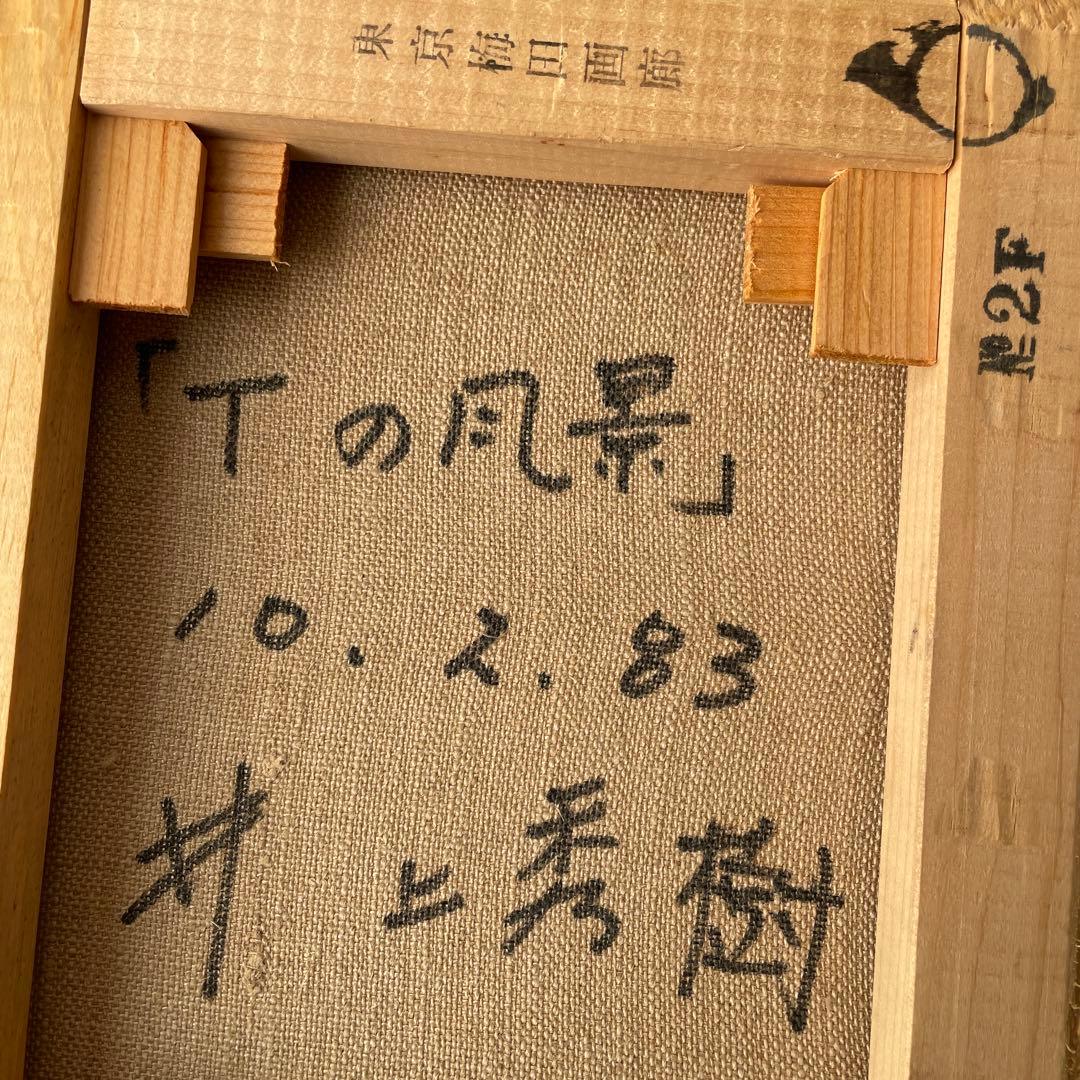 東京梅田画廊
№2F
「Tの風景」
10.2.83
井上秀樹